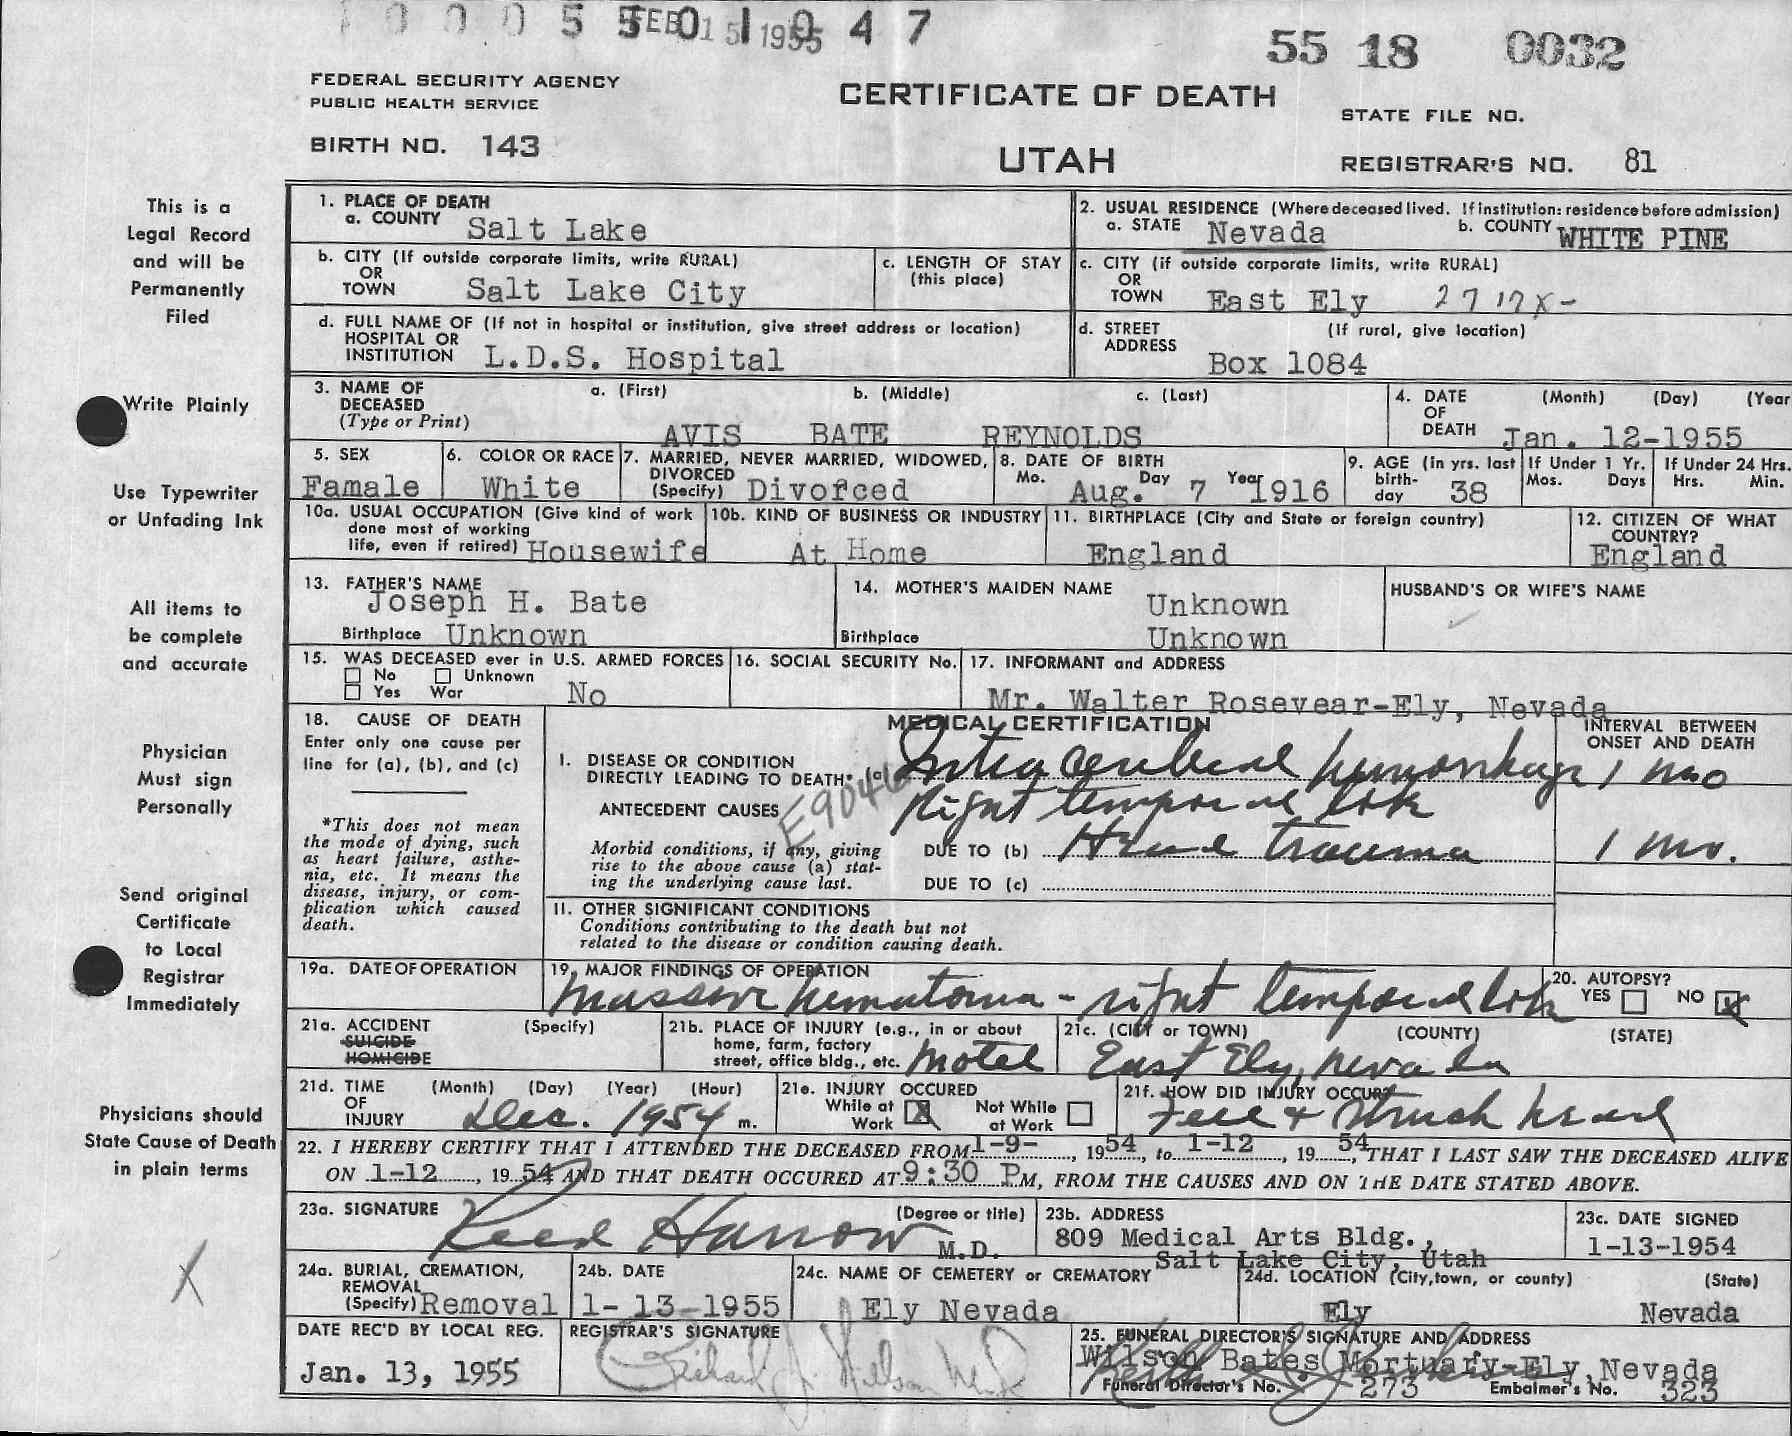 FEB 15 1955
55 18 0032
FEDERAL SECURITY AGENCY
PUBLIC HEALTH SERVICE
BIRTH NO. 143
CERTIFICATE OF DEATH
UTAH
STATE FILE NO.
REGISTRAR'S NO. 81
This is a
Legal Record
and will be
Permanently
Filed
Write Plainly
Use Typewriter
or Unfading Ink
All items to
be complete
and accurate
Physician
Must sign
Personally
Send original
Certificate
to Local
Registrar
Immediately
Physicians should
State Cause of Death
in plain terms
X
1. PLACE OF DEATH
a. COUNTY Salt Lake
2. USUAL RESIDENCE (Where deceased lived. If institution: residence before admission)
a. STATE Nevada b. COUNTY WHITE PINE
b. CITY (If outside corporate limits, write RURAL)
OR
TOWN Salt Lake City
c. LENGTH OF STAY
(this place)
c. CITY (if outside corporate limits, write RURAL)
OR
TOWN East Ely 27 17X-
d. FULL NAME OF (If not in hospital or institution, give street address or location)
HOSPITAL OR
INSTITUTION L.D.S. Hospital
d. STREET (If rural, give location)
ADDRESS
Box 1084
3. NAME OF a. (First) b. (Middle) c. (Last)
DECEASED
(Type or Print) AVIS BATE REYNOLDS
4. DATE (Month) (Day) (Year
OF
DEATH Jan. 12-1955
5. SEX
Famale
6. COLOR OR RACE
White
7. MARRIED, NEVER MARRIED, WIDOWED,
DIVORCED
(Specify) Divorced
8. DATE OF BIRTH
Mo. Day Year
Aug. 7 1916
9. AGE (in yrs. last
birth-
day 38
If Under 1 Yr.
Mos. Days
If Under 24 Hrs.
Hrs. Min.
10a. USUAL OCCUPATION (Give kind of work
done most of working
life, even if retired) Housewife
10b. KIND OF BUSINESS OR INDUSTRY
At Home
11. BIRTHPLACE (City and State or foreign country)
England
12. CITIZEN OF WHAT
COUNTRY?
England
13. FATHER'S NAME
Joseph H. Bate
Birthplace Unknown
14. MOTHER'S MAIDEN NAME
Unknown
Birthplace Unknown
HUSBAND'S OR WIFE'S NAME
15. WAS DECEASED ever in U.S. ARMED FORCES
No Unknown
Yes War No
16. SOCIAL SECURITY No.
17. INFORMANT and ADDRESS
Mr. Walter Rosevear-Ely, Nevada
18. CAUSE OF DEATH
Enter only one cause per
line for (a), (b), and (c)
*This does not mean
the mode of dying, such
as heart failure, asthe-
nia, etc. It means the
disease, injury, or com-
plication which caused
death.
MEDICAL CERTIFICATION
INTERVAL BETWEEN
ONSET AND DEATH
I. DISEASE OR CONDITION
DIRECTLY LEADING TO DEATH* (a) Intracerebral hemorrhage 1 mo
ANTECEDENT CAUSES right temporal lobe
Morbid conditions, if any, giving
rise to the above cause (a) stat-
ing the underlying cause last.
DUE TO (b) Head trauma 1 mo.
DUE TO (c)
II. OTHER SIGNIFICANT CONDITIONS
Conditions contributing to the death but not
related to the disease or condition causing death.
19a. DATE OF OPERATION
19. MAJOR FINDINGS OF OPERATION
Massive hematoma - right temporal lobe
20. AUTOPSY?
YES NO X
21a. ACCIDENT (Specify)
SUICIDE
HOMICIDE
21b. PLACE OF INJURY (e.g., in or about
home, farm, factory
street, office bldg., etc. Motel
21c. (CITY or TOWN) (COUNTY) (STATE)
East Ely, Nevada
21d. TIME (Month) (Day) (Year) (Hour)
OF
INJURY Dec. 1954 m.
21e. INJURY OCCURED
While at Work X Not While at Work
21f. HOW DID INJURY OCCUR?
Fell & struck head
22. I HEREBY CERTIFY THAT I ATTENDED THE DECEASED FROM 1-9-, 1954, to 1-12, 1954, THAT I LAST SAW THE DECEASED ALIVE
ON 1-12, 1954 AND THAT DEATH OCCURED AT 9:30 PM, FROM THE CAUSES AND ON THE DATE STATED ABOVE.
23a. SIGNATURE (Degree or title)
Reed Harrow M.D.
23b. ADDRESS
809 Medical Arts Bldg.,
Salt Lake City, Utah
23c. DATE SIGNED
1-13-1954
24a. BURIAL, CREMATION,
REMOVAL
(Specify) Removal
24b. DATE
1-13-1955
24c. NAME OF CEMETERY or CREMATORY
Ely Nevada
24d. LOCATION (City, town, or county) (State)
Ely Nevada
DATE REC'D BY LOCAL REG.
Jan. 13, 1955
REGISTRAR'S SIGNATURE
25. FUNERAL DIRECTOR'S SIGNATURE AND ADDRESS
Wilson Bates Mortuary-Ely, Nevada
Funeral Director's No. 273 Embalmer's No. 323